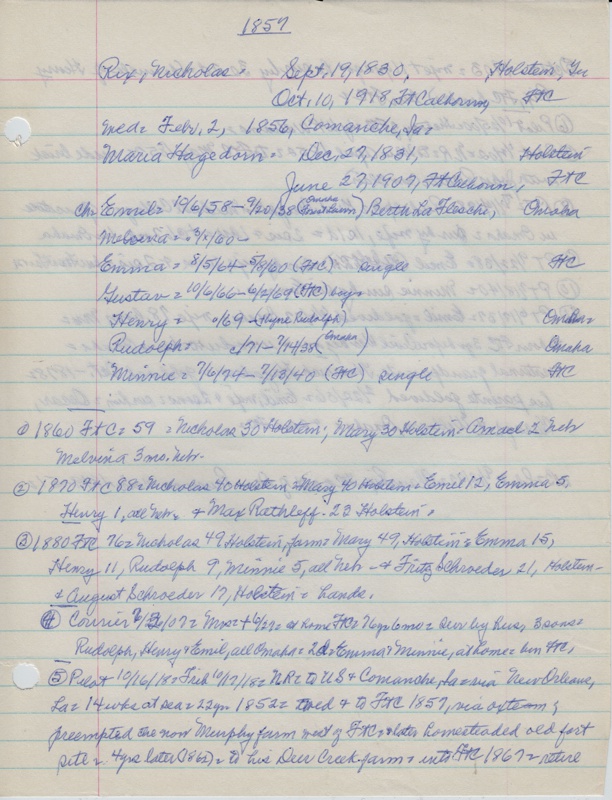 1857
Rix, Nicholas = Sept, 19, 1830, Holstein, Ger
Oct, 10, 1918, Ft Calhoun, FtC
med = Febr, 2, 1856, Comanche, Ia =
Maria Hagedorn = Dec, 27, 1831, Holstein
June 27, 1907, Ft Calhoun, FtC
ch = Emil = 10/6/58 - 9/20/38 (Omaha Forest Lawn) Berth La Flesche, Omaha
Melvina = 3/x/60 -
Emma = 8/5/64 - 5/8/60 (FtC) single FtC
Gustav = 10/6/66 - 6/2/69 (FtC)
Henry = c/69 - (Hyne Rudolph) Omaha
Rudolph = c/71 - 7/14/38 (Omaha) Omaha
Minnie = 7/6/74 - 7/13/40 (FtC) single FtC
① 1860 FtC = 59 = Nicholas 30 Holstein; Mary 30 Holstein - 2 Nebr
Melvina 3 mo. Nebr -
② 1870 FtC 88 = Nicholas 40 Holstein = Mary 40 Holstein = Emil 12, Emma 5,
Henry 1, all Nebr = & Max Rathleff - 23 Holstein,
③ 1880 FtC 76 = Nicholas 49 Holstein, farm = Mary 49, Holstein = Emma 15,
Henry 11, Rudolph 9, Minnie 5, all Nebr - & Fritz Schroeder 21, Holstein -
& August Schroeder 17, Holstein = hands,
④ Courier = Mrs = + 6/27 = at home FtC = 76 yr 6 mo = surv by hus, 3 sons =
Rudolph, Henry & Emil, all Omaha = 2d = Emma & Minnie, at home = bur FtC,
⑤ Pilot 10/16/18 = Fieb 10/17/18 = NR = to US & Comanche, Ia = via New Orleans,
La = 14 wks at sea = 22 yr 1852 = wed & to FtC 1857, via
preempted the now Murphy farm west of FtC = & later homesteaded old fort
site = 4 yrs later (1862) = to his Deer Creek farm = into FtC 1867 = retire